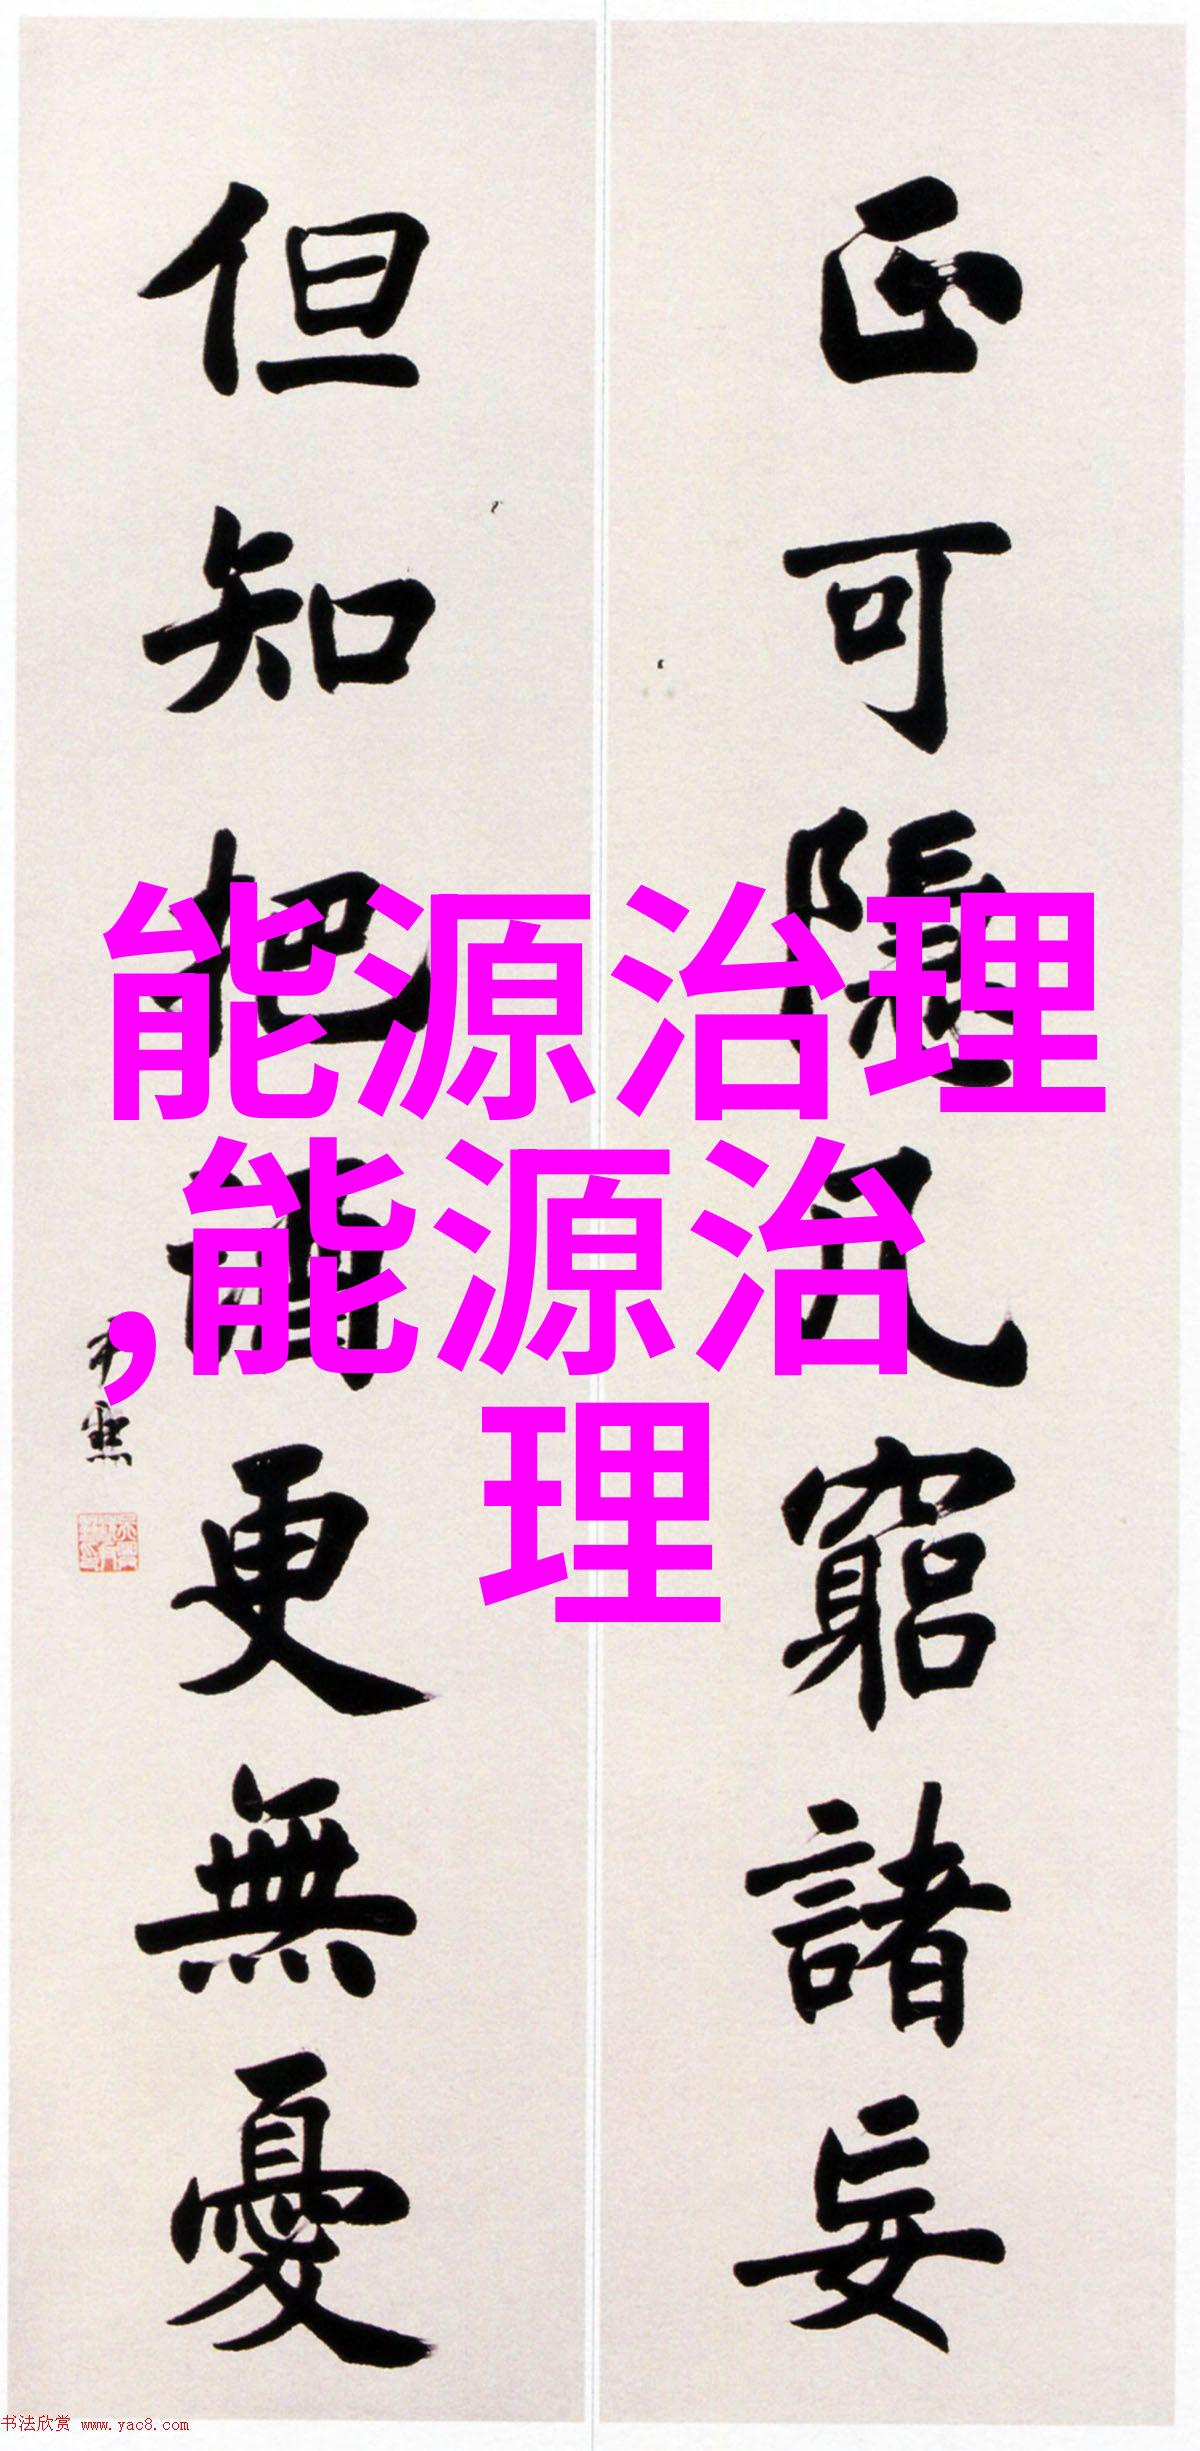 正可隱几窮諸妄
但知把更無憂
能源治理
,能源治
理
书法欣赏 www.yac8.com